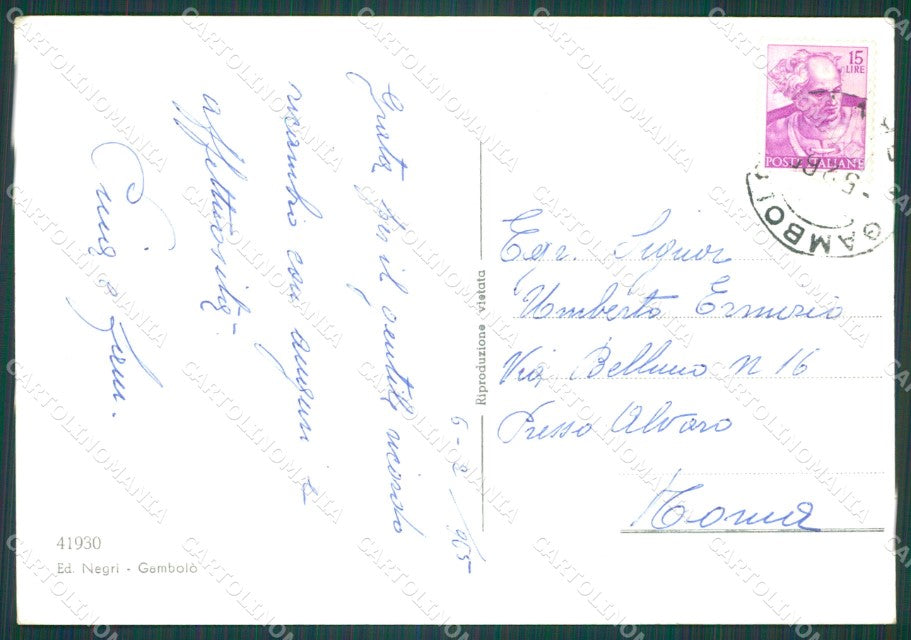 15
LIRE
POSTE ITALIANE
GAMBOLÒ
Grata per il gentile ricordo
ricambio con auguri e
affettuosità
Luigi e
5-2-965
Riproduzione vietata
Egr. Signor
Umberto Ermirio
Via Belluno N 16
Presso Alvaro
Roma
41930
Ed. Negri - Gambolò
CARTOLINOMANIA